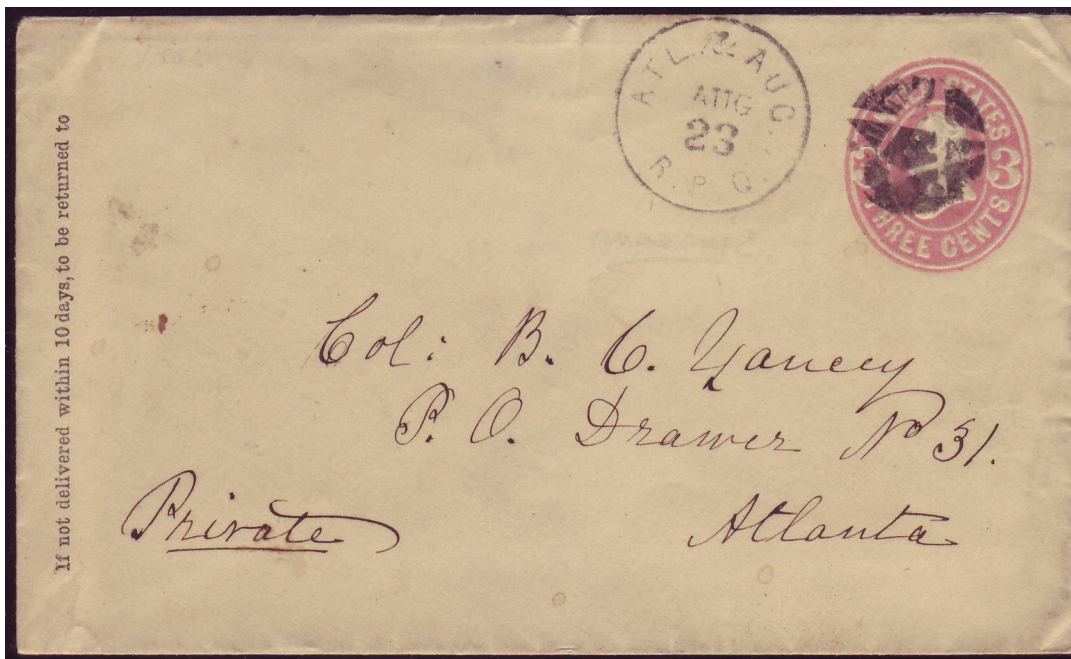 If not delivered within 10 days, to be returned to
ATL. & AUG.
AUG
23
R.P.O.
UNITED STATES
3 3
THREE CENTS
Col: B. C. Yancey
P. O. Drawer No 31.
Private
Atlanta